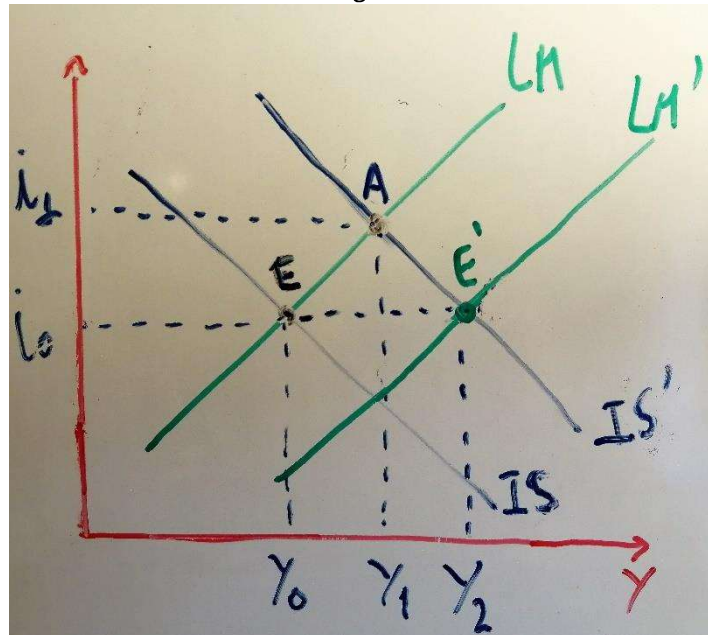 LM
LM'
A
i₁
E
E'
i₀
IS'
IS
Y₀
Y₁
Y₂
Y